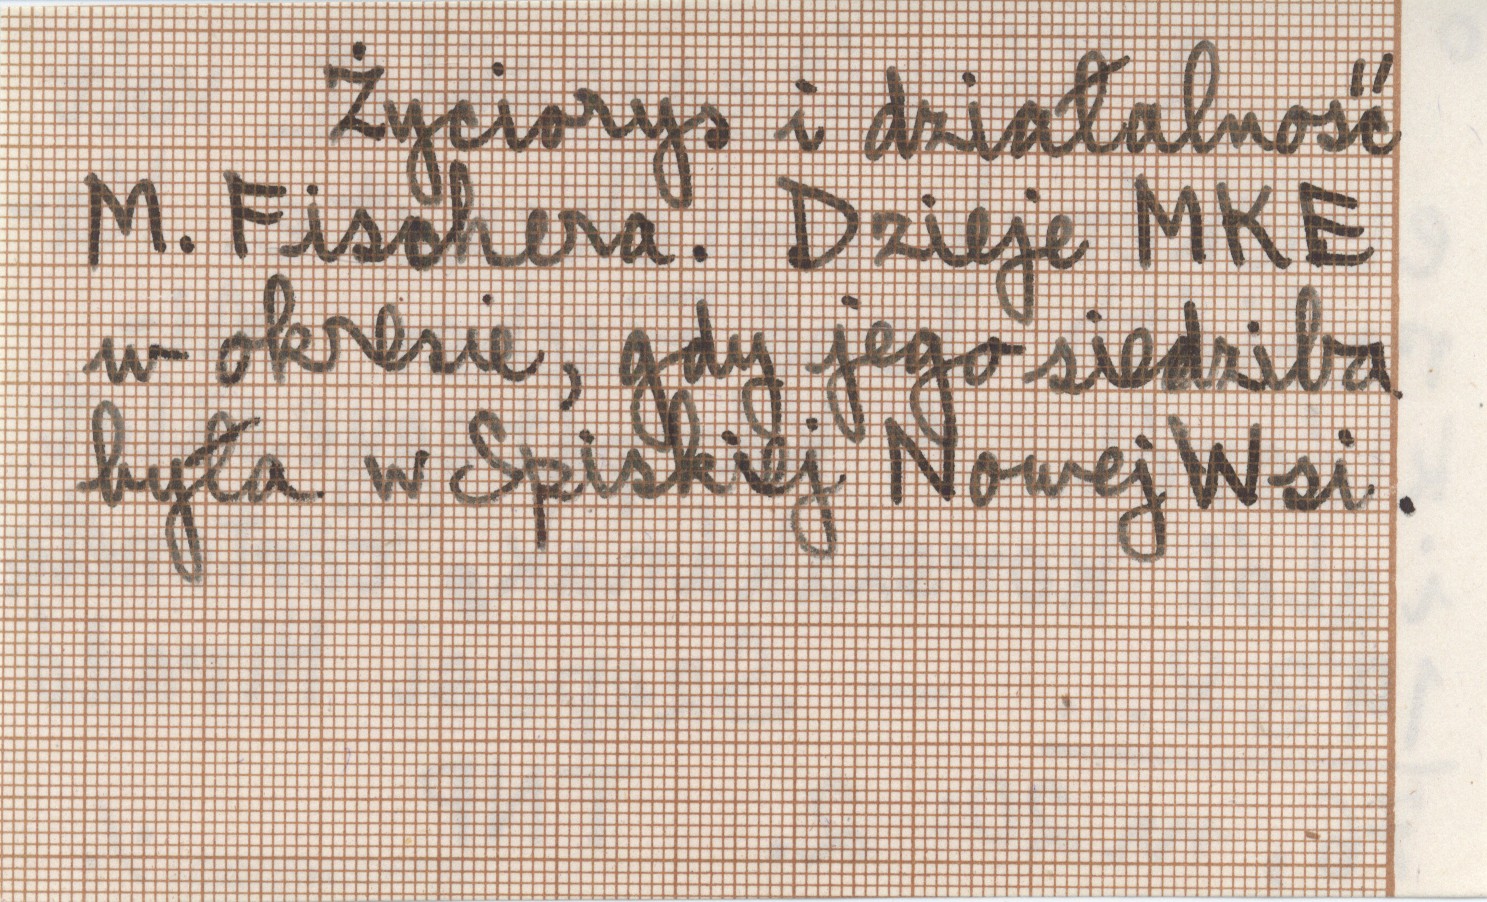 Życiorys i działalność
M. Fischera. Dzieje MKE
w okresie, gdy jego siedziba
była w Spiskiej Nowej Wsi.